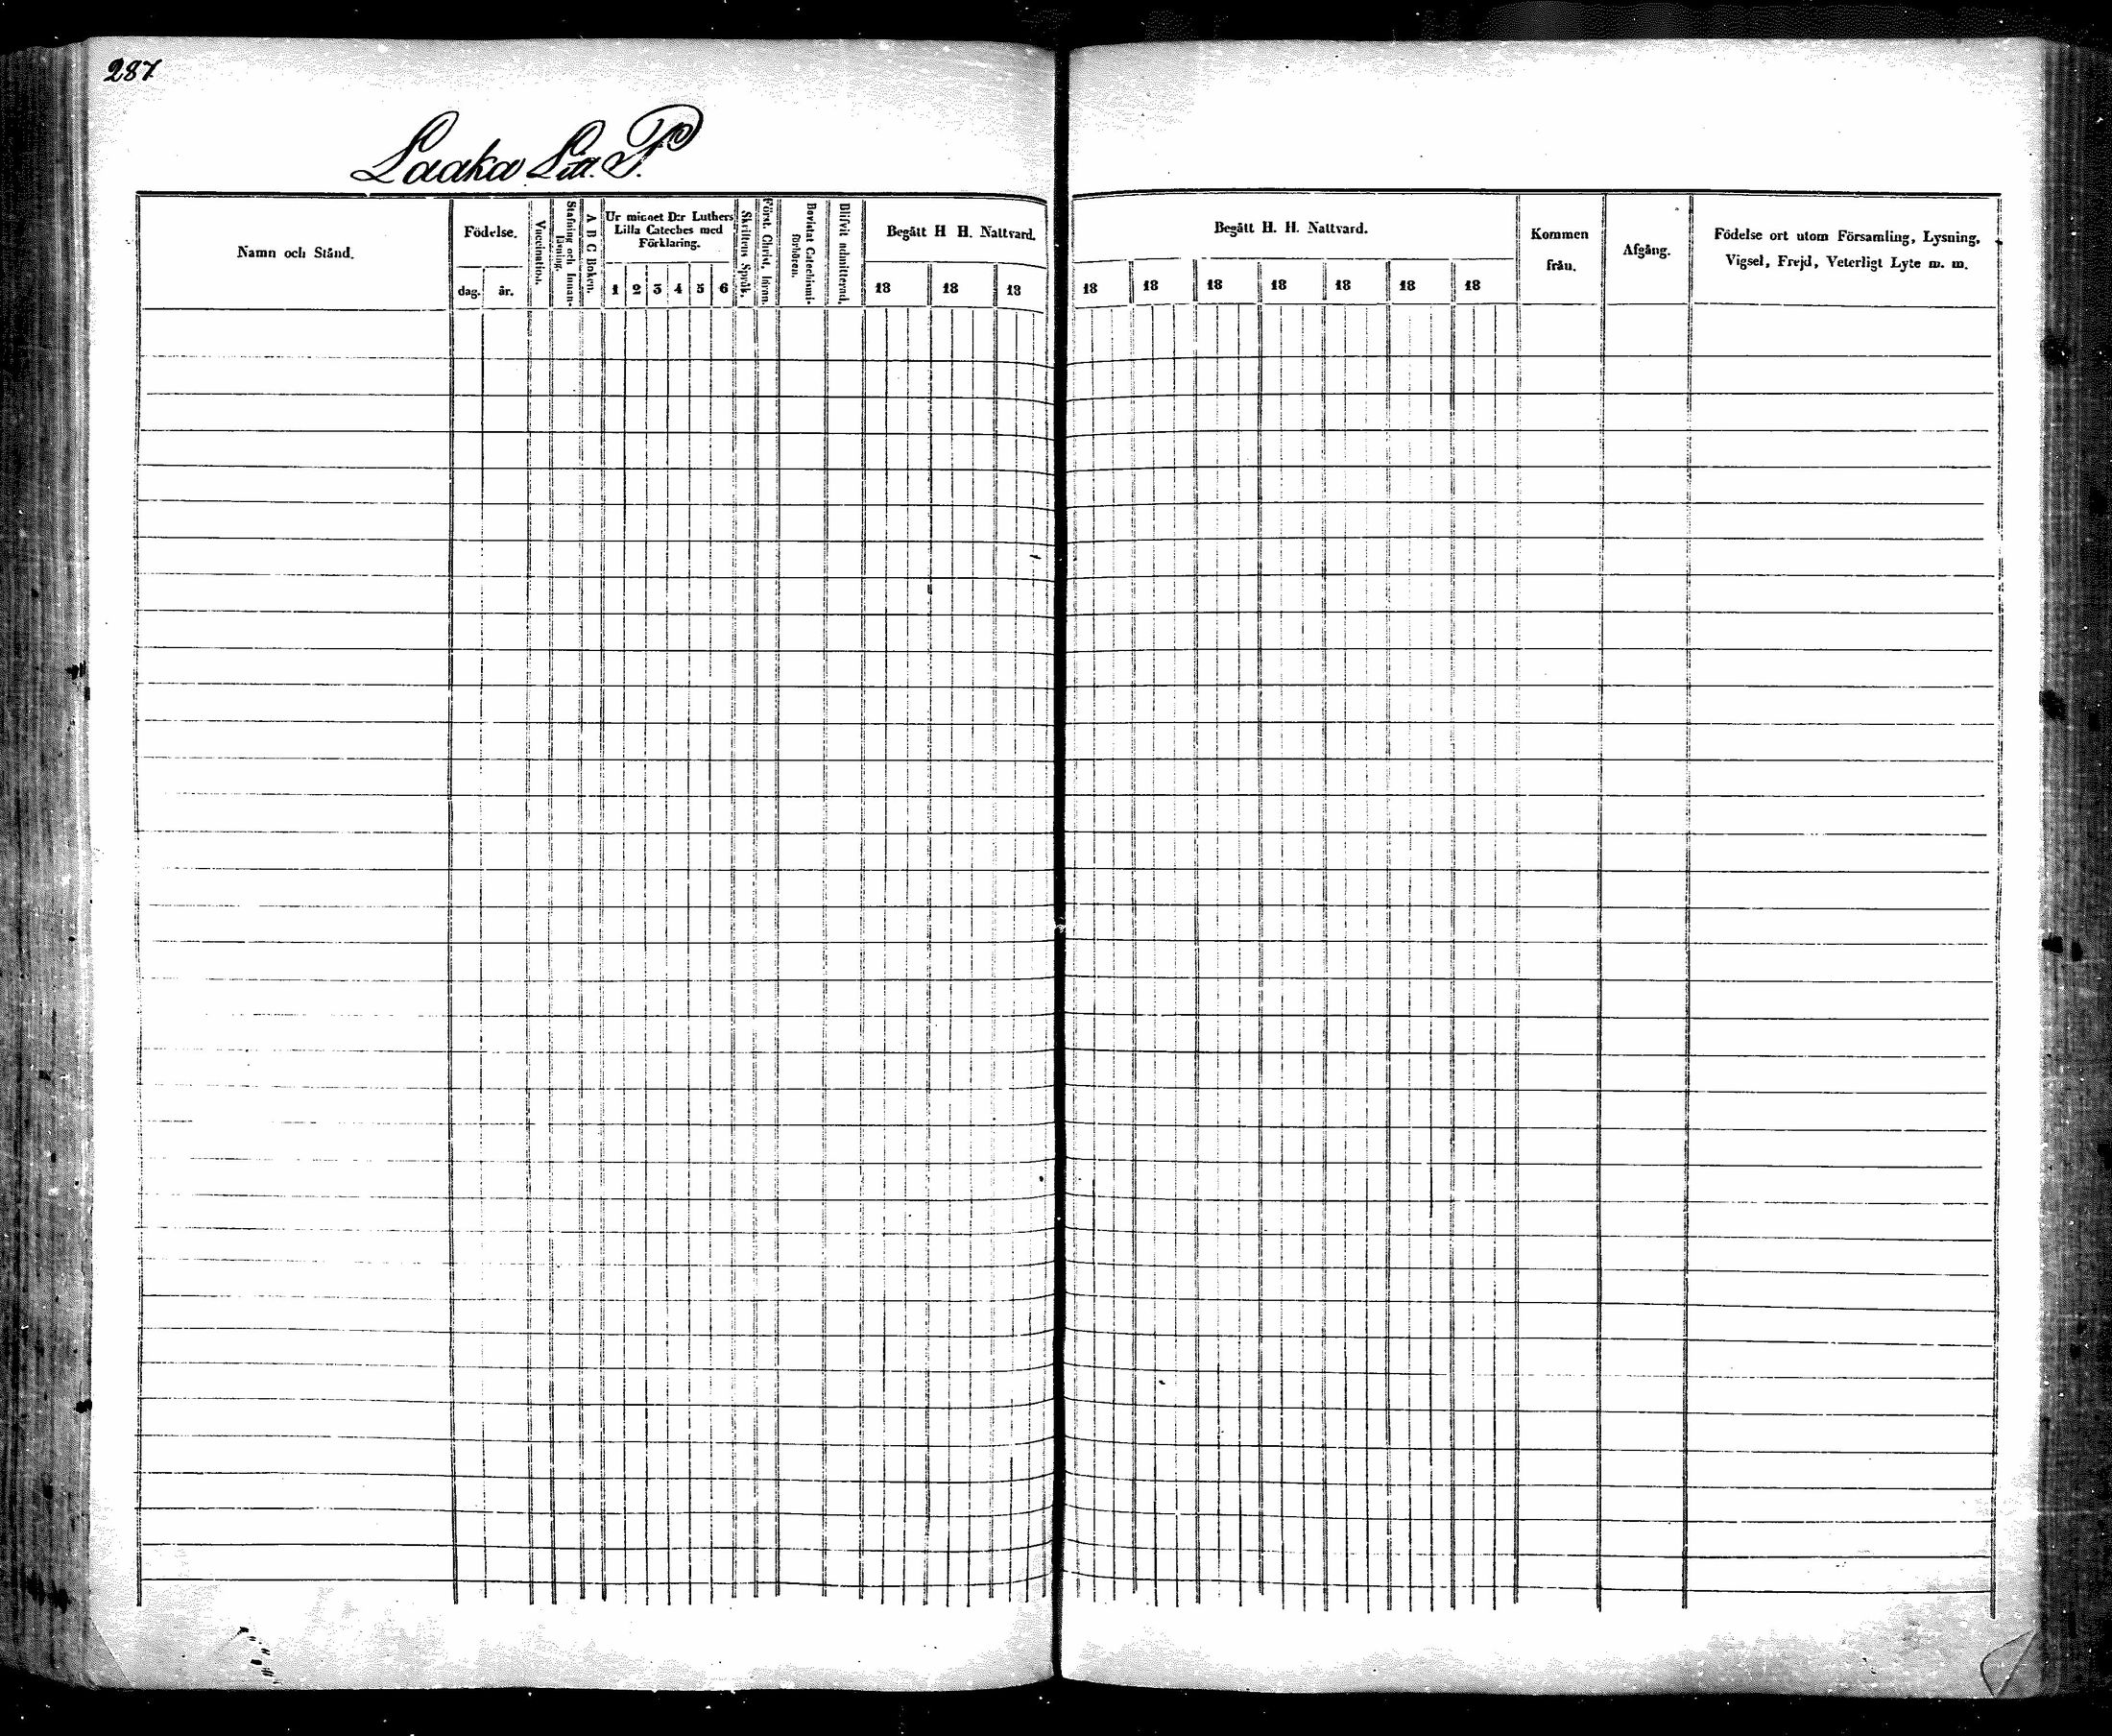 287
Laaka Litt. P.
Namn och Stånd.
Födelse.
dag.
år.
Vaccination.
Stafning och Innan-
läsning.
A B C Boken.
Ur minnet D:r Luthers
Lilla Cateches med
Förklaring.
1 2 3 4 5 6
Skriftens Språk.
Först. Christ. läran.
Bevistat Catechismi-
förhören.
Blifvit admitterad.
Begått H H. Nattvard.
18 18 18
Begått H. H. Nattvard.
18 18 18 18 18 18 18
Kommen
från.
Afgång.
Födelse ort utom Församling, Lysning,
Vigsel, Frejd, Veterligt Lyte m. m.